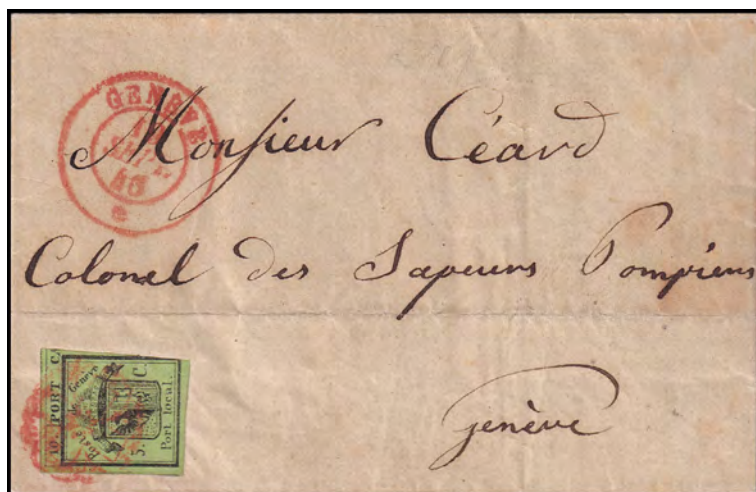 GENÈVE
Monsieur Céard
Colonel des Sapeurs Pompiers
genève
10 PORT C
Poste de Genève
5. C.
Port local.